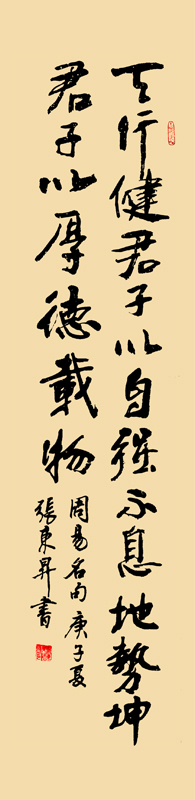 天行健君子以自强不息地势坤
君子以厚德載物
周易名句庚子夏
張東昇書